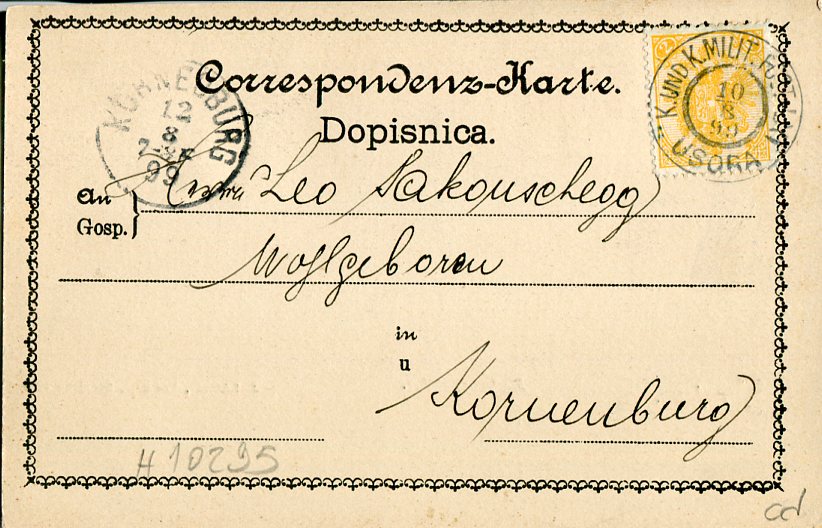 Correspondenz-Karte.
Dopisnica.
KORNEUBURG
12
8
99
K. UND K. MILIT. POST
10
8
99
USORA
2
An
Gosp.
Herrn Leo Sakouschegg
Wohlgeboren
in
u
Korneuburg
H 10295
cd